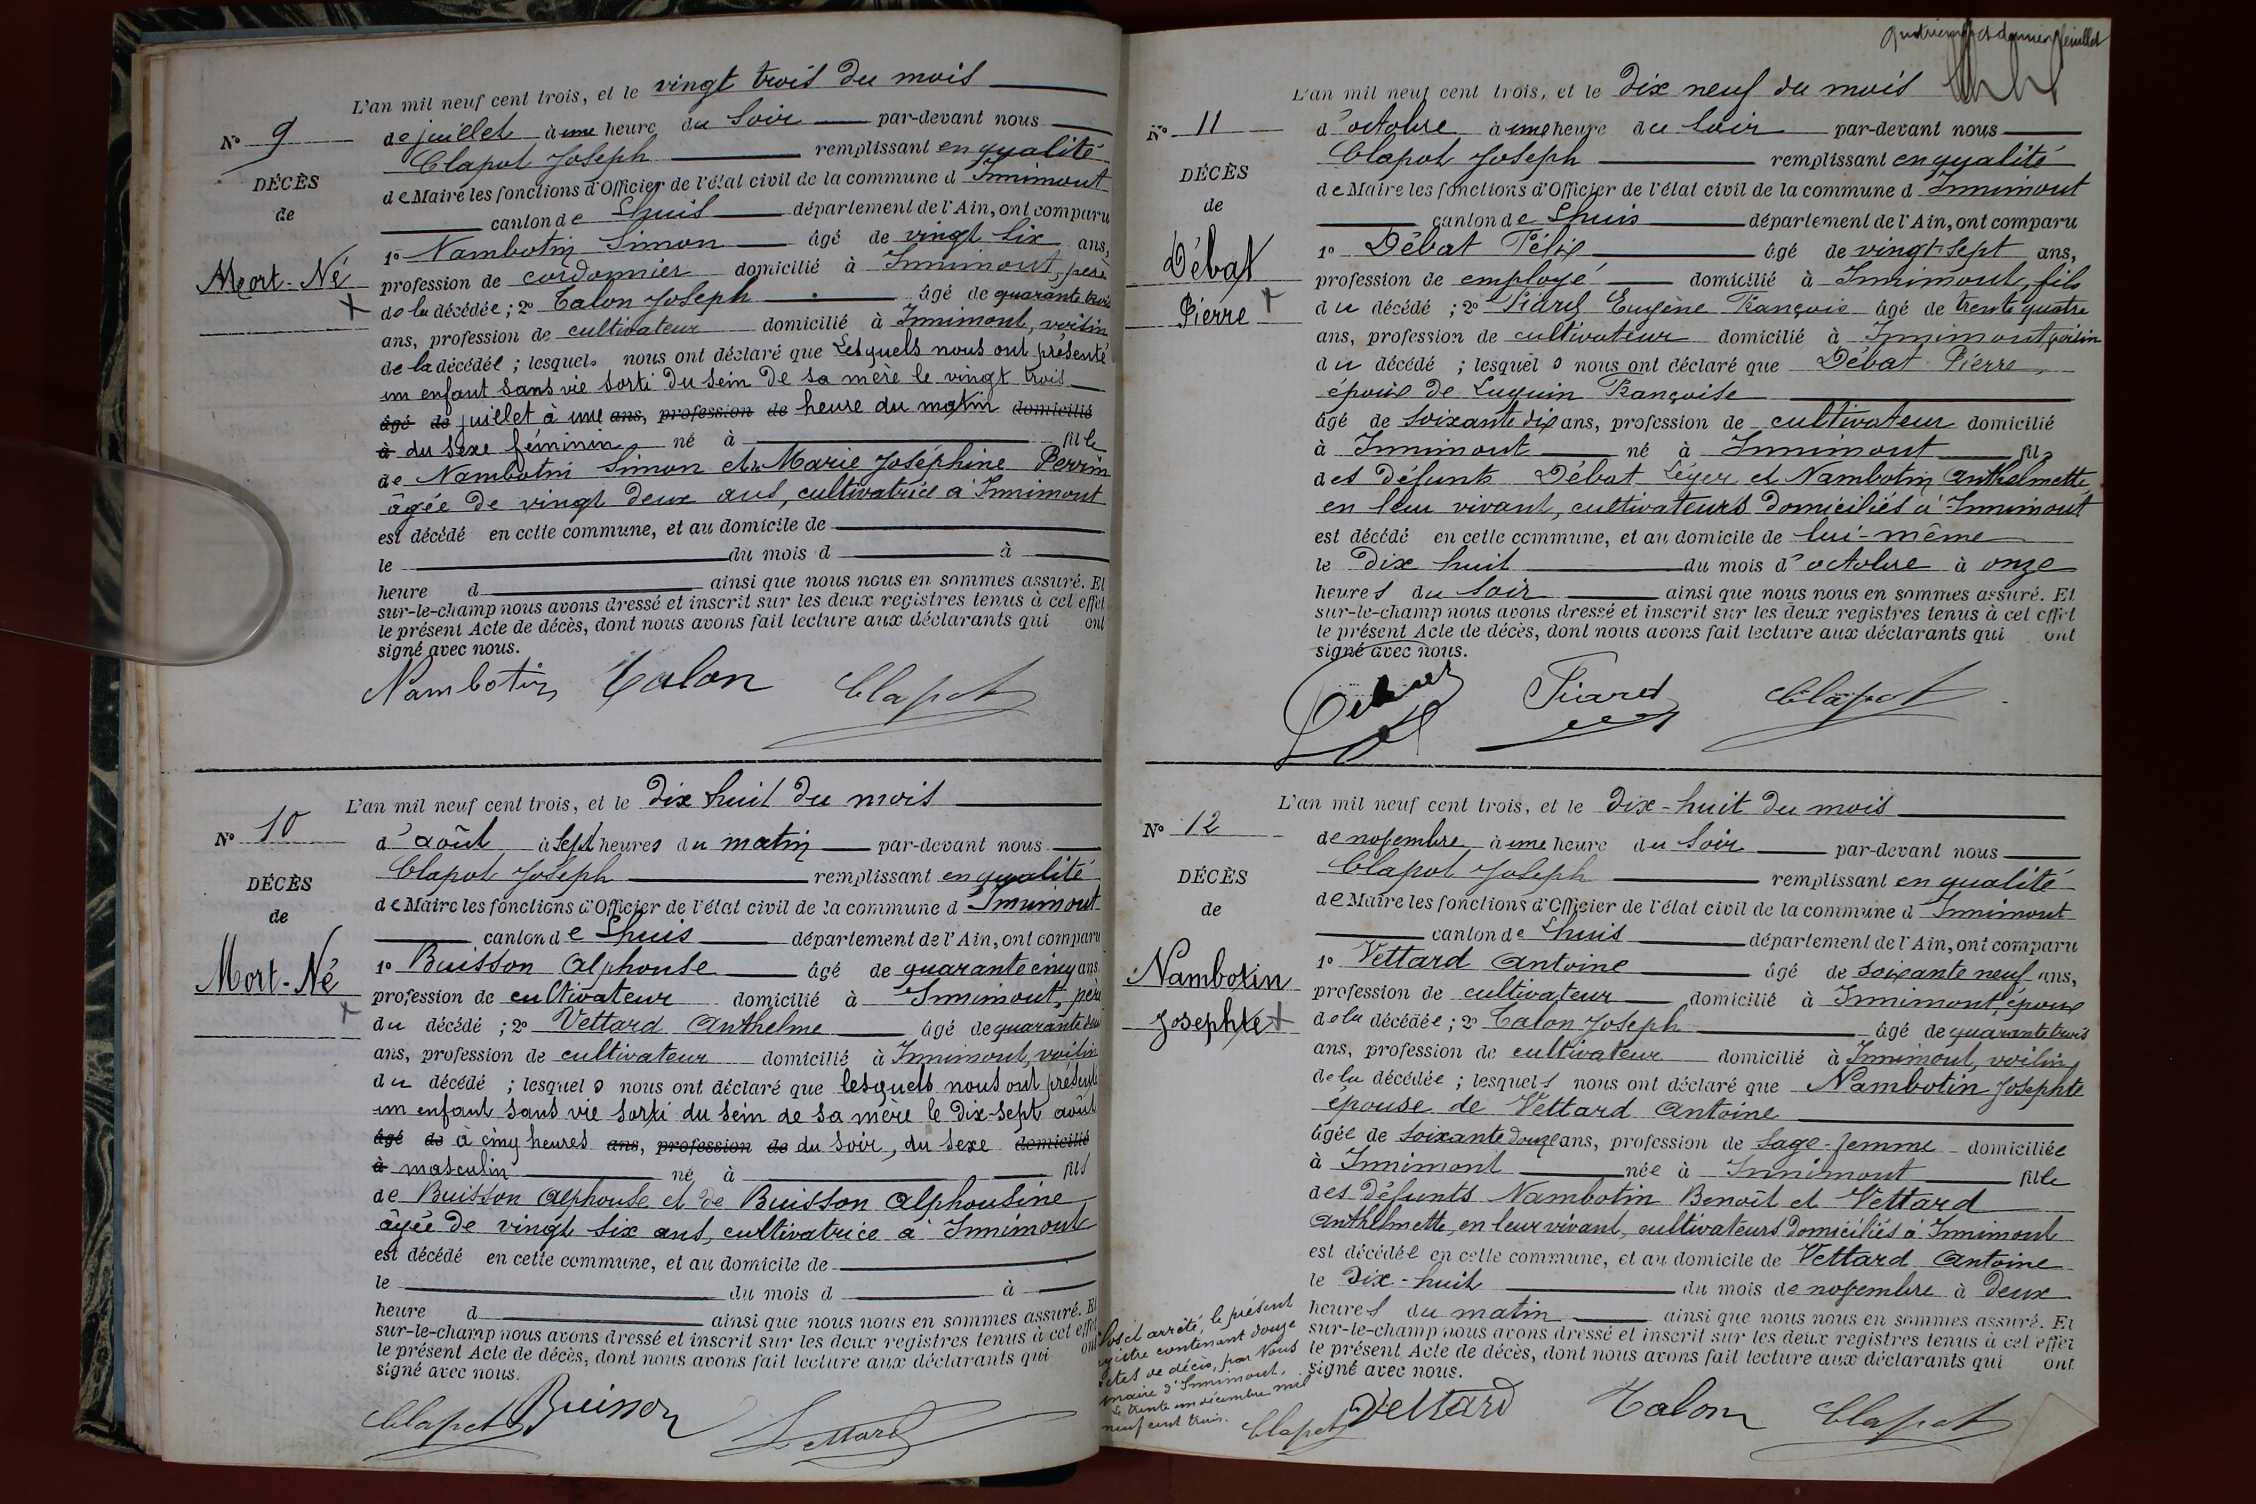 L'an mil neuf cent trois, et le vingt trois du mois
N° 9
de juillet à une heure du soir par-devant nous
Clapot Joseph remplissant en qualité
DÉCÈS
de Maire les fonctions d'Officier de l'état civil de la commune d Innimont
de
canton de Lhuis département de l'Ain, ont comparu
1° Nambotin Simon âgé de vingt six ans,
Mort-Né
profession de cordonnier domicilié à Innimont, père
de la décédée ; 2° Talon Joseph âgé de quarante trois
ans, profession de cultivateur domicilié à Innimont, voisin
de la décédée ; lesquels nous ont déclaré que Lesquels nous ont présenté
un enfant sans vie sorti du sein de sa mère le vingt trois
âgé de juillet à une ans, profession de heure du matin domicilié
à du sexe féminin né à fille
de Nambotin Simon et de Marie Joséphine Perrin
âgée de vingt deux ans, cultivatrice à Innimont
est décédé en cette commune, et au domicile de
le du mois d à
heure d ainsi que nous nous en sommes assuré. Et
sur-le-champ nous avons dressé et inscrit sur les deux registres tenus à cet effet
le présent Acte de décès, dont nous avons fait lecture aux déclarants qui ont
signé avec nous.
Nambotin Talon Clapot
L'an mil neuf cent trois, et le dix huit du mois
N° 10
d'août à sept heures du matin par-devant nous
Clapot Joseph remplissant en qualité
DÉCÈS
de Maire les fonctions d'Officier de l'état civil de la commune d Innimont
de
canton de Lhuis département de l'Ain, ont comparu
Mort-Né
1° Buisson Alphonse âgé de quarante cinq ans
profession de cultivateur domicilié à Innimont, père
du décédé ; 2° Vettard Anthelme âgé de quarante deux
ans, profession de cultivateur domicilié à Innimont, voisin
du décédé ; lesquels nous ont déclaré que lesquels nous ont présenté
un enfant sans vie sorti du sein de sa mère le dix-sept août
âgé de à cinq heures ans, profession de du soir, du sexe domicilié
à masculin né à fils
de Buisson Alphonse et de Buisson Alphonsine
âgée de vingt six ans, cultivatrice à Innimont
est décédé en cette commune, et au domicile de
le du mois d à
heure d ainsi que nous nous en sommes assuré. Et
sur-le-champ nous avons dressé et inscrit sur les deux registres tenus à cet effet
le présent Acte de décès, dont nous avons fait lecture aux déclarants qui ont
signé avec nous.
Clapot Buisson Vettard
quatrième et dernier feuillet
L'an mil neuf cent trois, et le dix neuf du mois
N° 11
d'octobre à une heure du soir par-devant nous
Clapot Joseph remplissant en qualité
DÉCÈS
de Maire les fonctions d'Officier de l'état civil de la commune d Innimont
de
canton de Lhuis département de l'Ain, ont comparu
Débat
1° Débat Félix âgé de vingt-sept ans,
profession de employé domicilié à Innimont, fils
Pierre
du décédé ; 2° Piard Eugène François âgé de trente quatre
ans, profession de cultivateur domicilié à Innimont, voisin
du décédé ; lesquels nous ont déclaré que Débat Pierre
époux de Luquin Françoise
âgé de soixante dix ans, profession de cultivateur domicilié
à Innimont né à Innimont fils
des défunts Débat Léger et Nambotin Anthelmette
en leur vivant, cultivateurs domiciliés à Innimont
est décédé en cette commune, et au domicile de lui-même
le dix huit du mois d'octobre à onze
heures du soir ainsi que nous nous en sommes assuré. Et
sur-le-champ nous avons dressé et inscrit sur les deux registres tenus à cet effet
le présent Acte de décès, dont nous avons fait lecture aux déclarants qui ont
signé avec nous.
Débat Piard Clapot
L'an mil neuf cent trois, et le dix-huit du mois
N° 12
de novembre à une heure du soir par-devant nous
Clapot Joseph remplissant en qualité
DÉCÈS
de Maire les fonctions d'Officier de l'état civil de la commune d Innimont
de
canton de Lhuis département de l'Ain, ont comparu
Nambotin
1° Vettard Antoine âgé de soixante neuf ans,
profession de cultivateur domicilié à Innimont, époux
Josephte
de la décédée ; 2° Talon Joseph âgé de quarante trois
ans, profession de cultivateur domicilié à Innimont, voisin
de la décédée ; lesquels nous ont déclaré que Nambotin Josephte
épouse de Vettard Antoine
âgée de soixante douze ans, profession de sage-femme domiciliée
à Innimont née à Innimont fille
des défunts Nambotin Benoît et Vettard
Anthelmette, en leur vivant, cultivateurs domiciliés à Innimont
est décédée en cette commune, et au domicile de Vettard Antoine
le dix-huit du mois de novembre à deux
heures du matin ainsi que nous nous en sommes assuré. Et
sur-le-champ nous avons dressé et inscrit sur les deux registres tenus à cet effet
le présent Acte de décès, dont nous avons fait lecture aux déclarants qui ont
signé avec nous.
Clos et arrêté, le présent
registre contenant douze
actes de décès, par Nous
maire d'Innimont,
le trente un décembre mil
neuf cent trois.
Clapot Vettard Talon Clapot